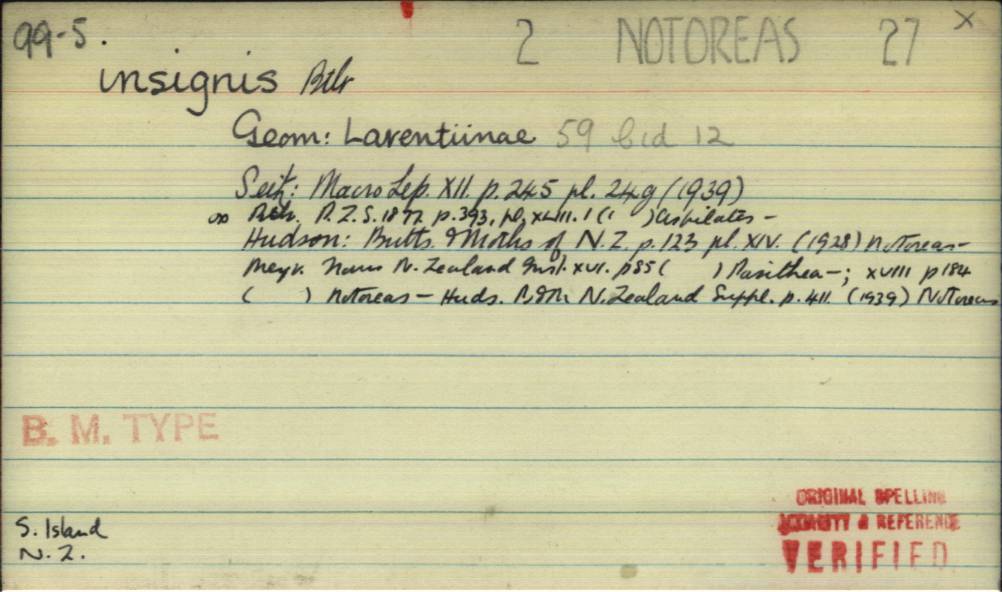 99-5. 2 NOTOREAS 27 X
insignis Btlr
Geom: Larentiinae 59 bid 12
Seitz: Macro Lep. XII. p. 245 pl. 24g (1939)
Btlr. P.Z.S. 1877 p. 393, pl. XLIII. 1 ( ) Aspilates –
Hudson: Butts. & Moths of N.Z. p. 123 pl. XIV. (1928) Notoreas –
Meyr. Trans N. Zealand Inst. XVI. p 85 ( ) Pasithea –; XVIII p 184
( ) Notoreas – Huds. B. & M. N. Zealand Suppl. p. 411. (1939) Notoreas
B. M. TYPE
ORIGINAL SPELLING
& REFERENCE
VERIFIED.
S. Island
N. Z.